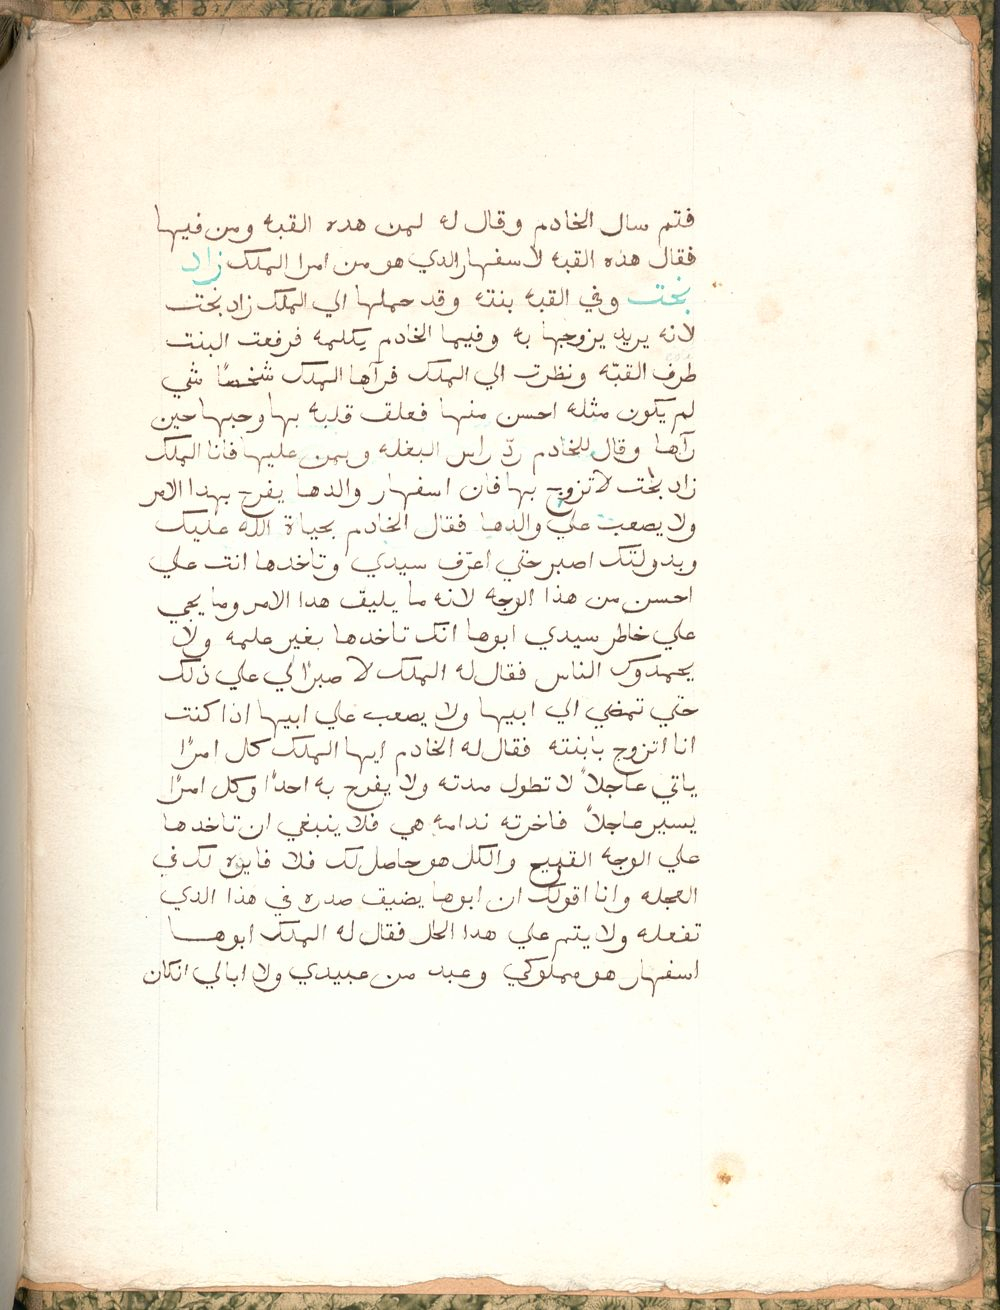 فتم سال الخادم وقال له لمن هده القبه ومن فيها
فقال هذه القبه لاسفهار الدي هو من امرا الملك زاد
بخت وفي القبه بنته وقد حملها الي الملك زاد بخت
لانه يريد يزوجها به وفيما الخادم يكلمه فرفعت البنت
طرف القبّه ونظرت الي الملك فرآها الملك شخصًا شي
لم يكون مثله احسن منها فعلق قلبه بها وحبها حين
رآها وقال للخادم ردّ راس البغله وبمن عليها فانا الملك
زاد بخت لاتزوج بها فان اسفهار والدها يفرح بهدا الامر
ولا يصعب علي والدها فقال الخادم بحياة الله عليك
وبدولتك اصبر حتي اعرّف سيدي وتاخدها انت علي
احسن من هذا الوجه لانه ما يليق هدا الامر وما يجي
علي خاطر سيدي ابوها انك تاخدها بغير علمه ولا
يحمدوك الناس فقال له الملك لا صبرًا لي علي ذلك
حتي تمضي الي ابيها ولا يصعب علي ابيها اذا كنت
انا اتزوج بابنته فقال له الخادم ايها الملك كل امرًا
ياتي عاجلاً لا تطول مدته ولا يفرح به احدًا وكل امرًا
يسير عاجلاً فاخرته ندامه هي فلا ينبغي ان تاخدها
علي الوجه القبيح والكل هو حاصل لك فلا فايده لك في
العجله وانا اقولك ان ابوها يضيق صدره في هذا الدي
تفعله ولا يتم علي هدا الحال فقال له الملك ابوها
اسفهار هو مملوكي وعبد من عبيدي ولا ابالي انكان